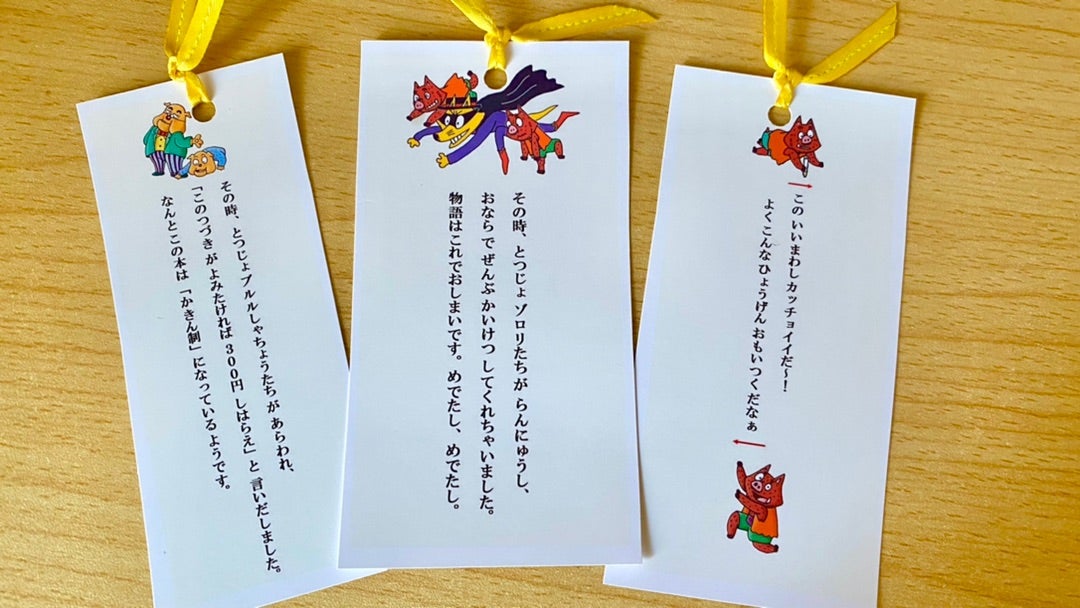 その時、とつじょブルルしゃちょうたちが あらわれ、
「このつづきが よみたければ 300円 しはらえ」と 言いだしました。
なんとこの本は「かきん制」になっているようです。
その時、とつじょ ゾロリたちが らんにゅうし、
おならで ぜんぶ かいけつ してくれちゃいました。
物語はこれでおしまいです。めでたし、めでたし。
この いいまわし カッチョイイだ〜！
よくこんな ひょうげん おもいつくだなぁ